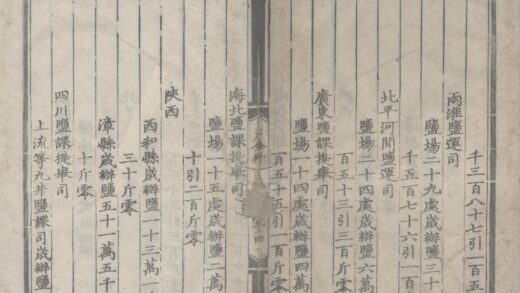 千三百八十七引一百
兩淮鹽運司
鹽場二十九處歲辦鹽三十
千五百七十六引一百
北平河間鹽運司
鹽場二十四處歲辦鹽六萬
百五十三引三百
廣東鹽課提舉司
鹽場一十四處歲辦鹽四萬
百五十五引一百斤零
海北鹽課提舉司
鹽場一十五處歲辦鹽二萬
十引二百斤零
陝西
西和縣歲辦鹽一十三萬一
三十斤零
漳縣歲辦鹽五十一萬五千
十斤零
四川鹽課提舉司
上流等九井鹽課司歲辦鹽